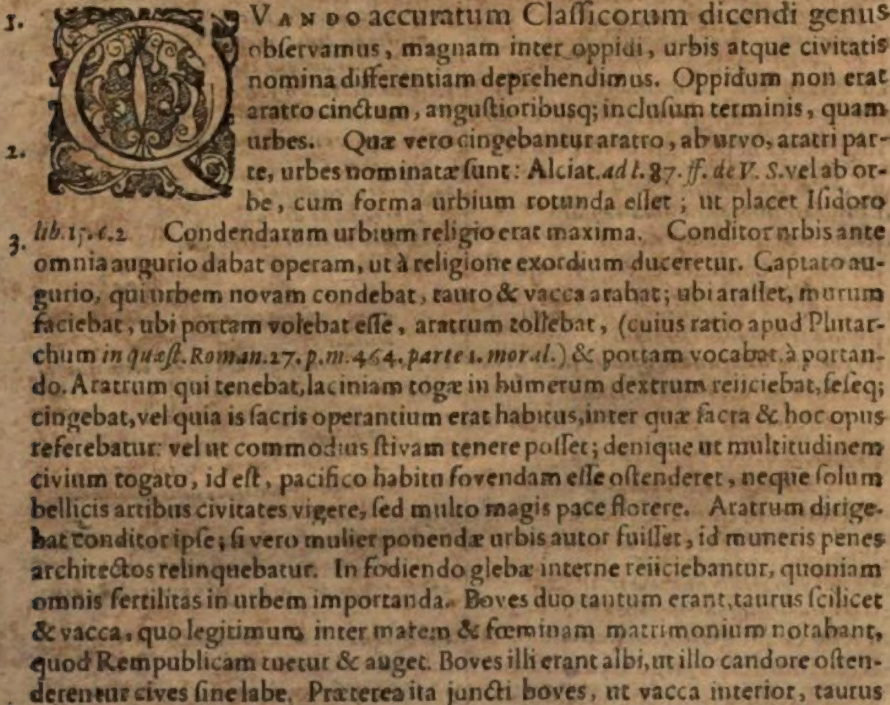 1. QVANDO accuratum Claſſicorum dicendi genus
obſervamus, magnam inter oppidi, urbis atque civitatis
nomina differentiam deprehendimus. Oppidum non erat
aratro cinctum, anguſtioribusq; incluſum terminis, quam
2. urbes. Quæ vero cingebantur aratro, ab urvo, aratri par-
te, urbes nominatæ ſunt: Alciat. ad l. 87. ff. de V. S. vel ab or-
be, cum forma urbium rotunda eſſet; ut placet Iſidoro
3. lib. 15. c. 2 Condendarum urbium religio erat maxima. Conditor urbis ante
omnia augurio dabat operam, ut à religione exordium duceretur. Captato au-
gurio, qui urbem novam condebat, tauro & vacca arabat; ubi araſſet, murum
faciebat, ubi portam volebat eſſe, aratrum tollebat, (cuius ratio apud Plutar-
chum in quæſt. Roman. 27. p. m. 464. parte 1. moral.) & portam vocabat à portan-
do. Aratrum qui tenebat, laciniam togæ in humerum dextrum reiiciebat, ſeſeq;
cingebat, vel quia is ſacris operantium erat habitus, inter quæ ſacra & hoc opus
referebatur: vel ut commodius ſtivam tenere poſſet; denique ut multitudinem
civium togato, id eſt, pacifico habitu fovendam eſſe oſtenderet, neque ſolum
bellicis artibus civitates vigere, ſed multo magis pace florere. Aratrum dirige-
bat conditor ipſe; ſi vero mulier ponendæ urbis autor fuiſſet, id muneris penes
architectos relinquebatur. In fodiendo glebæ interne reiiciebantur, quoniam
omnis fertilitas in urbem importanda. Boves duo tantum erant, taurus ſcilicet
& vacca, quo legitimum inter marem & fœminam matrimonium notabant,
quod Rempublicam tuetur & auget. Boves illi erant albi, ut illo candore oſten-
derentur cives ſine labe. Præterea ita juncti boves, ut vacca interior, taurus